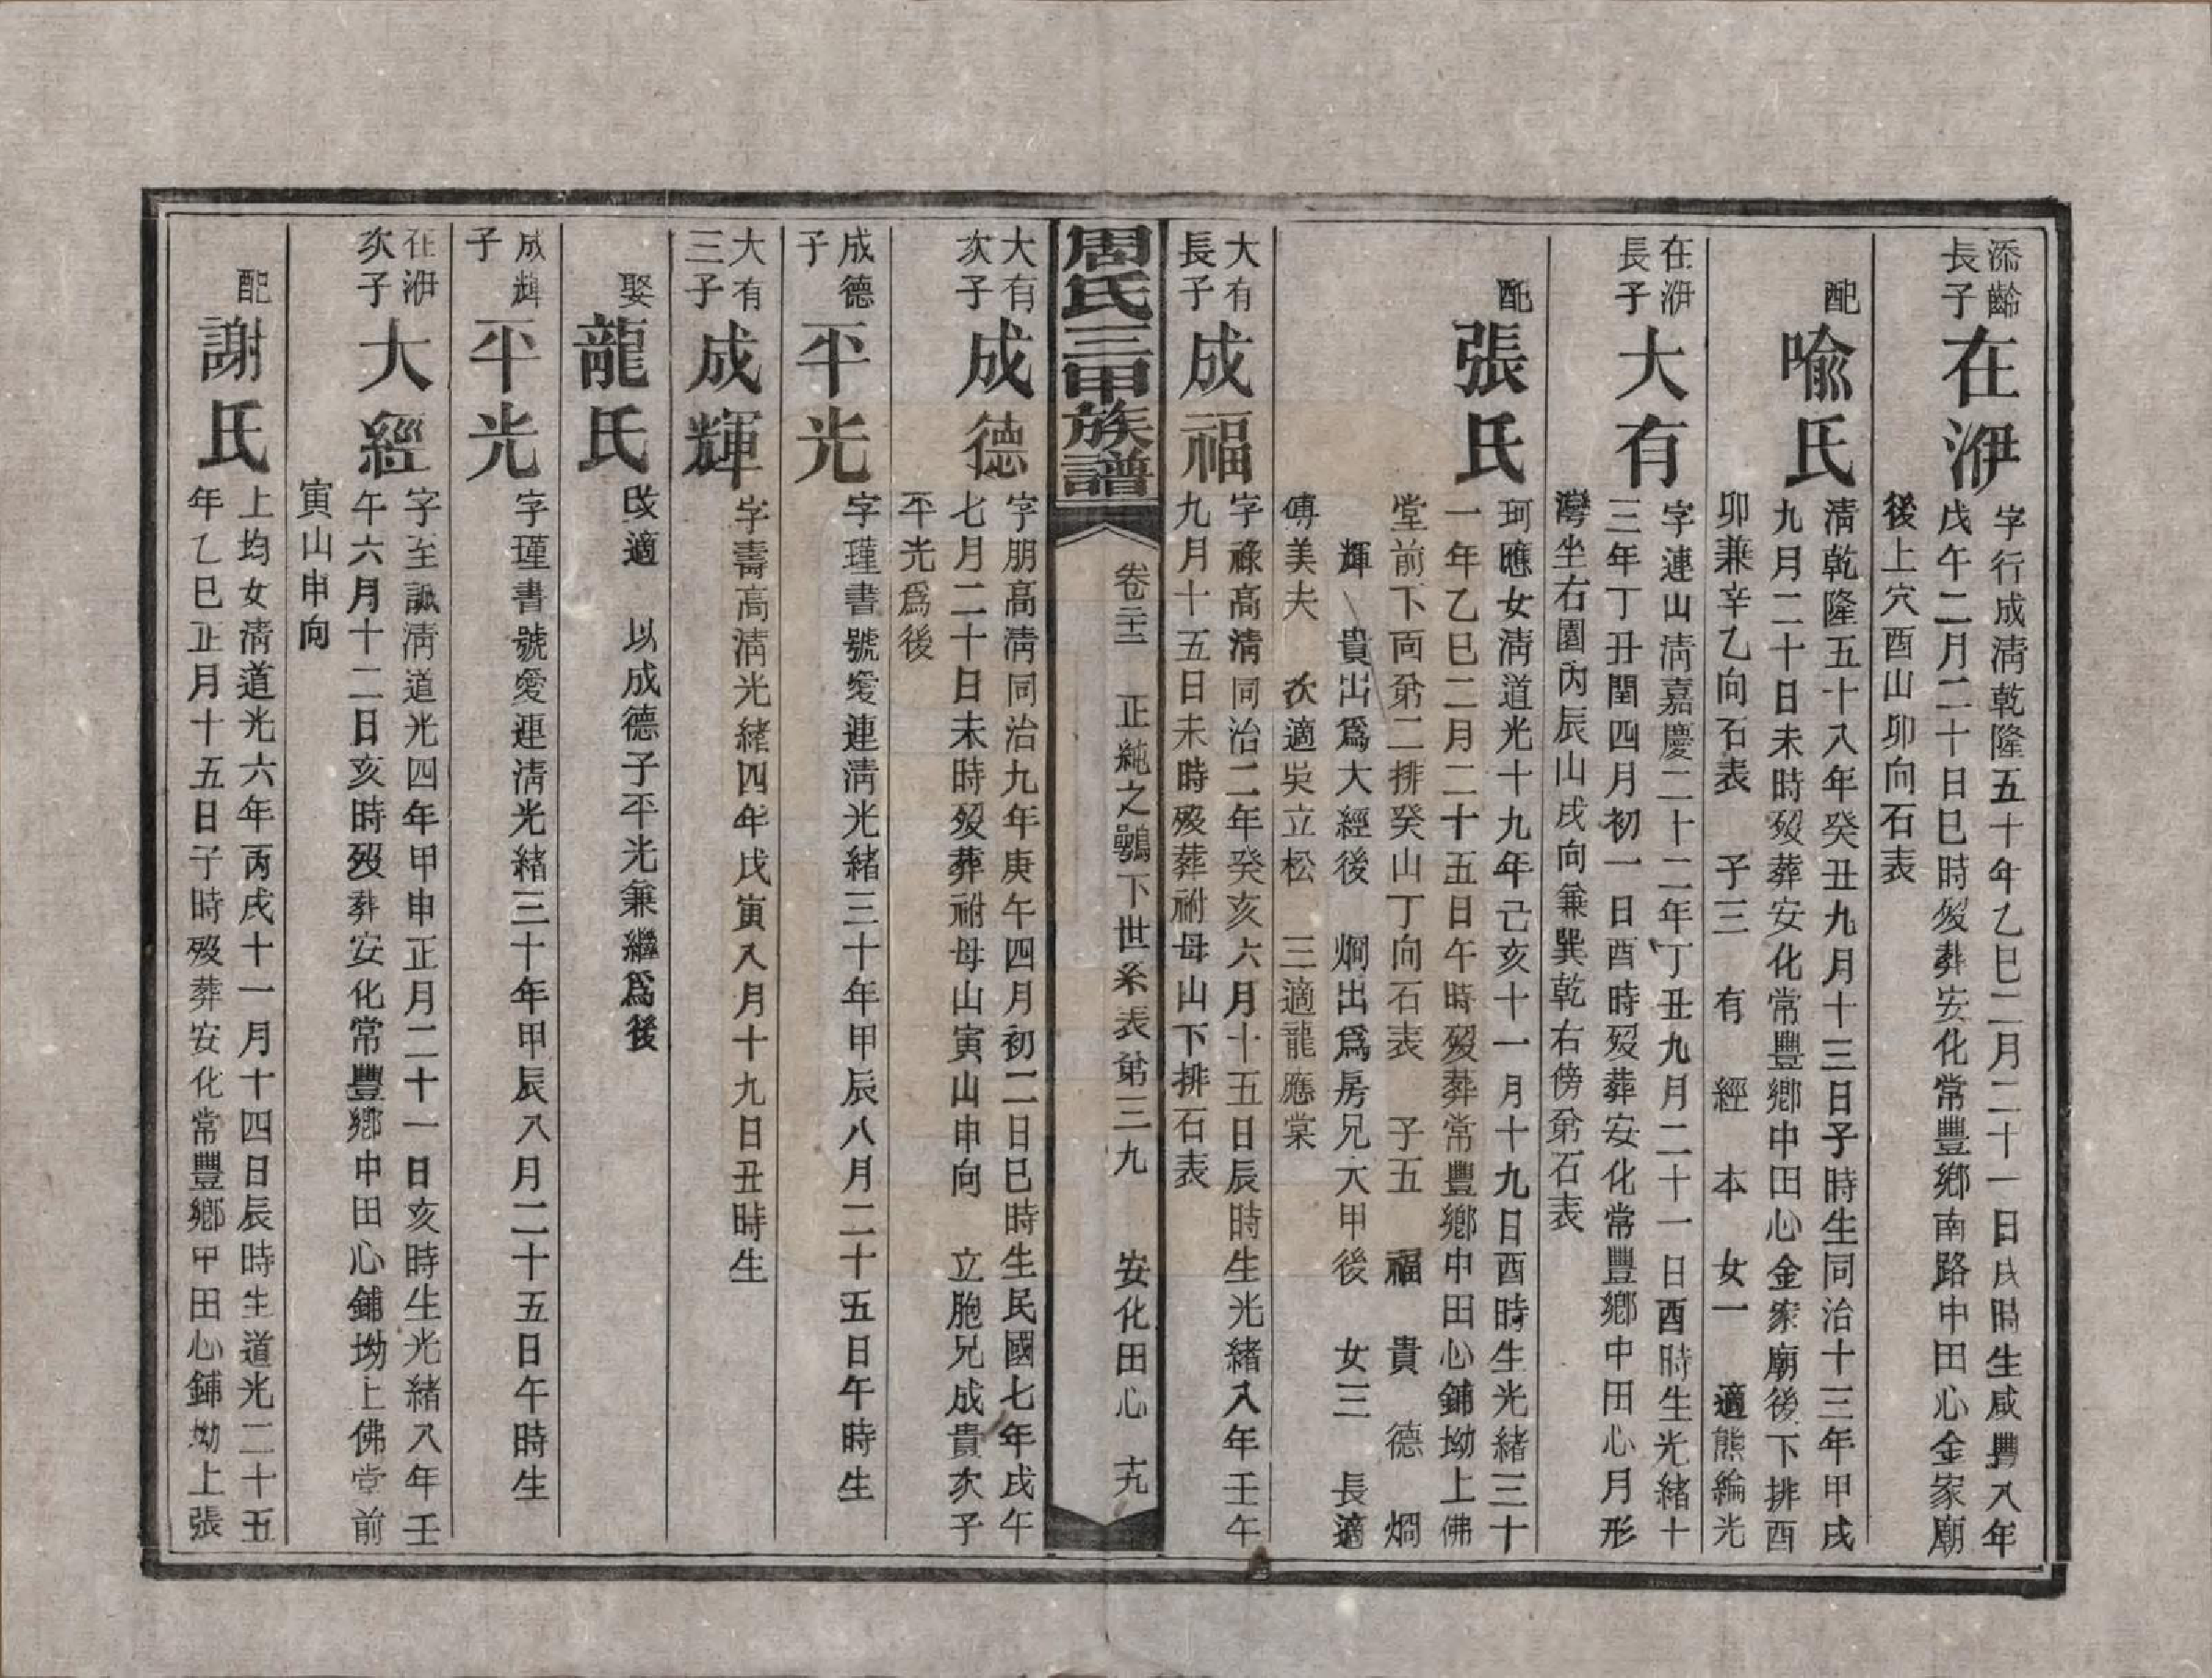 添齡
長子
在洢
字行成淸乾隆五十年乙巳二月二十一日戌時生咸豐八年
戊午二月二十日巳時歿葬安化常豐鄉南路中田心金家廟
後上穴酉山卯向石表
配
喩氏
淸乾隆五十八年癸丑九月十三日子時生同治十三年甲戌
九月二十日未時歿葬安化常豐鄉中田心金家廟後下排酉
卯兼辛乙向石表 子三 有 經 本 女一 適熊綸光
在洢
長子
大有
字連山淸嘉慶二十二年丁丑九月二十一日酉時生光緖十
三年丁丑閏四月初一日酉時歿葬安化常豐鄉中田心月形
灣坐右園內辰山戌向兼巽乾右傍弟石表
配
張氏
珂應女淸道光十九年己亥十一月十九日酉時生光緖三十
一年乙巳二月二十五日午時歿葬常豐鄉中田心鋪坳上佛
堂前下向弟二排癸山丁向石表 子五 福 貴 德 烱
輝 貴出爲大經後 烱出爲房兄大甲後 女三 長適
傅美夫 次適吳立松 三適龍應棠
大有
長子
成福
字祿高淸同治二年癸亥六月十五日辰時生光緖八年壬午
九月十五日未時歿葬祔母山下排石表
周氏三甲族譜
卷二十二 正純之鶚下世系表弟三九 安化田心 十九
大有
次子
成德
字朋高淸同治九年庚午四月初二日巳時生民國七年戌午
七月二十日未時歿葬祔母山寅山申向 立胞兄成貴次子
平光爲後
成德
子
平光
字瑾書號愛連淸光緖三十年甲辰八月二十五日午時生
大有
三子
成輝
字壽高淸光緖四年戊寅八月十九日丑時生
娶
龍氏
改適 以成德子平光兼繼爲後
成輝
子
平光
字瑾書號愛連淸光緖三十年甲辰八月二十五日午時生
在洢
次子
大經
字至諴淸道光四年甲申正月二十一日亥時生光緖八年壬
午六月十二日亥時歿葬安化常豐鄉中田心鋪坳上佛堂前
寅山申向
配
謝氏
上均女淸道光六年丙戌十一月十四日辰時生道光二十五
年乙巳正月十五日子時歿葬安化常豐鄉中田心鋪坳上張